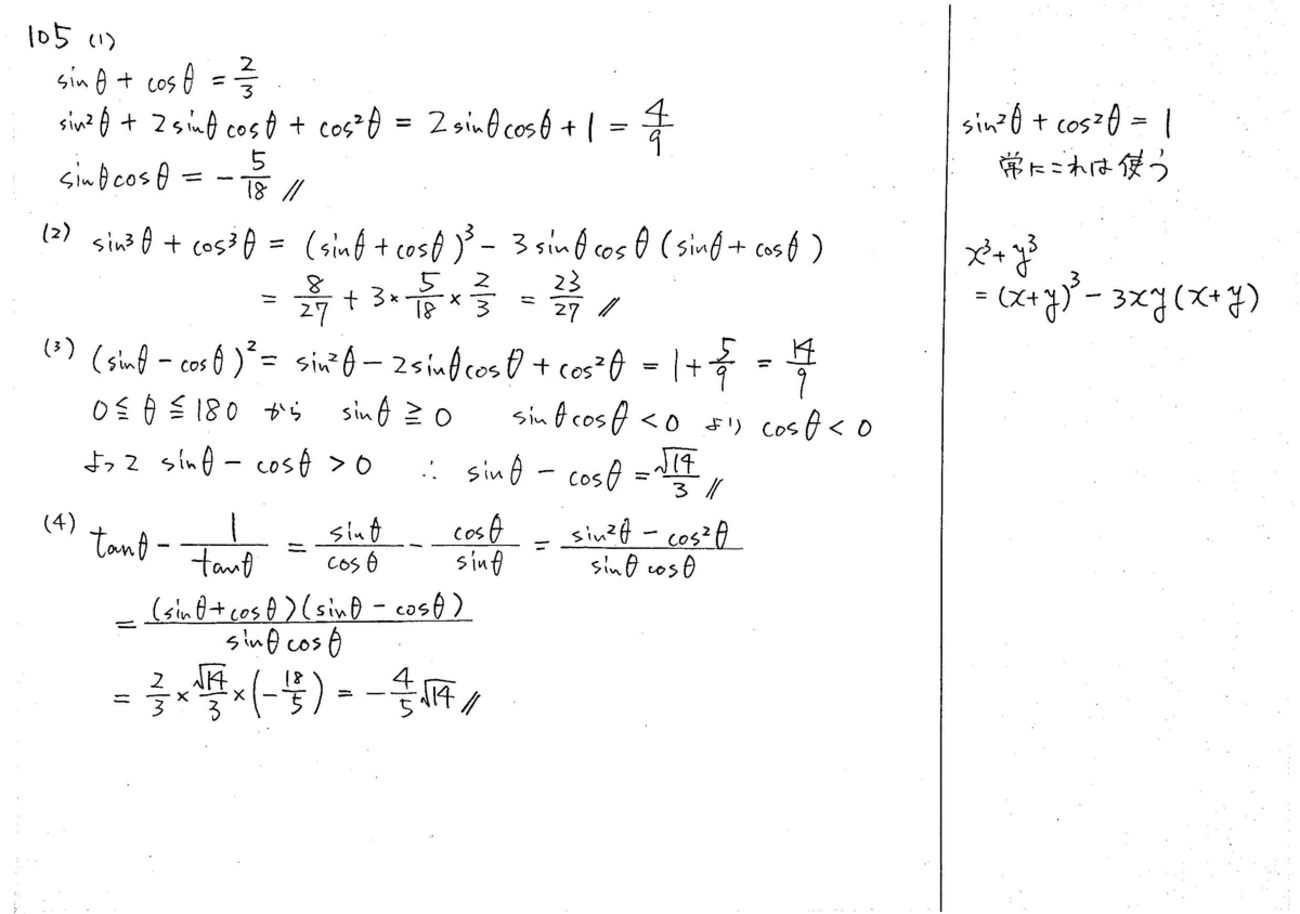 105 (1)
sinθ + cosθ = 2/3
sin²θ + 2sinθcosθ + cos²θ = 2sinθcosθ + 1 = 4/9
sinθcosθ = -5/18 //
(2) sin³θ + cos³θ = (sinθ + cosθ)³ - 3sinθcosθ(sinθ + cosθ)
= 8/27 + 3×5/18×2/3 = 23/27 //
(3) (sinθ - cosθ)² = sin²θ - 2sinθcosθ + cos²θ = 1 + 5/9 = 14/9
0≦θ≦180 から sinθ≧0 sinθcosθ<0 より cosθ<0
よって sinθ - cosθ > 0 ∴ sinθ - cosθ = √14/3 //
(4) tanθ - 1/tanθ = sinθ/cosθ - cosθ/sinθ = (sin²θ - cos²θ)/(sinθcosθ)
= (sinθ+cosθ)(sinθ - cosθ)/(sinθcosθ)
= 2/3 × √14/3 × (-18/5) = -4/5√14 //
sin²θ + cos²θ = 1
常にこれは使う
x³+y³
= (x+y)³ - 3xy(x+y)